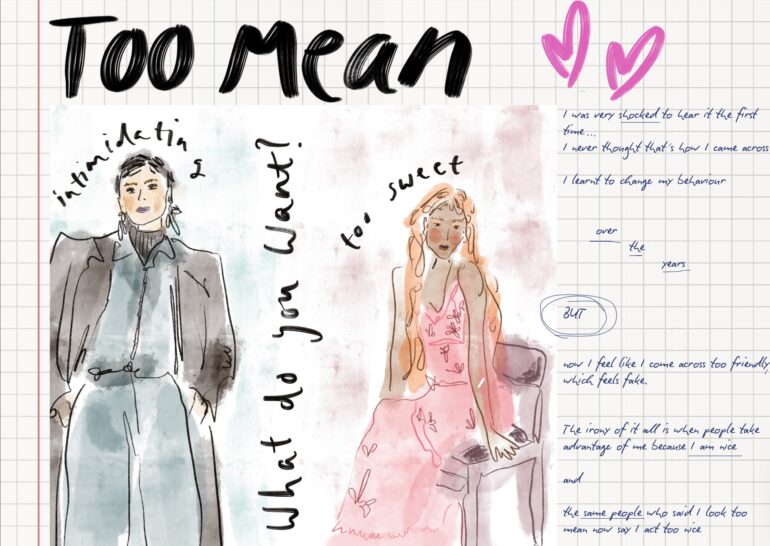 Too Mean
intimidating
What do you Want?
too sweet
I was very shocked to hear it the first
time...
I never thought that's how I came across
I learnt to change my behaviour
over
the
years
BUT
now I feel like I come across too friendly
which feels fake.
The irony of it all is when people take
advantage of me because I am nice
and
the same people who said I look too
mean now say I act too nice